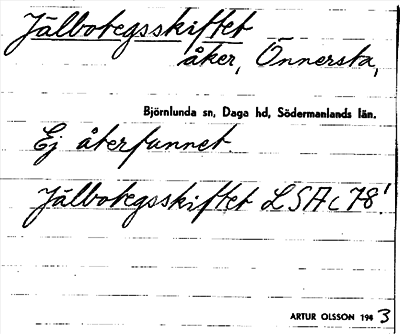 Jälbotegsskiftet
åker, Önnersta,
Björnlunda sn, Daga hd, Södermanlands län.
Ej återfunnet.
Jälbotegsskiftet LSA c 78!
ARTUR OLSSON 1943